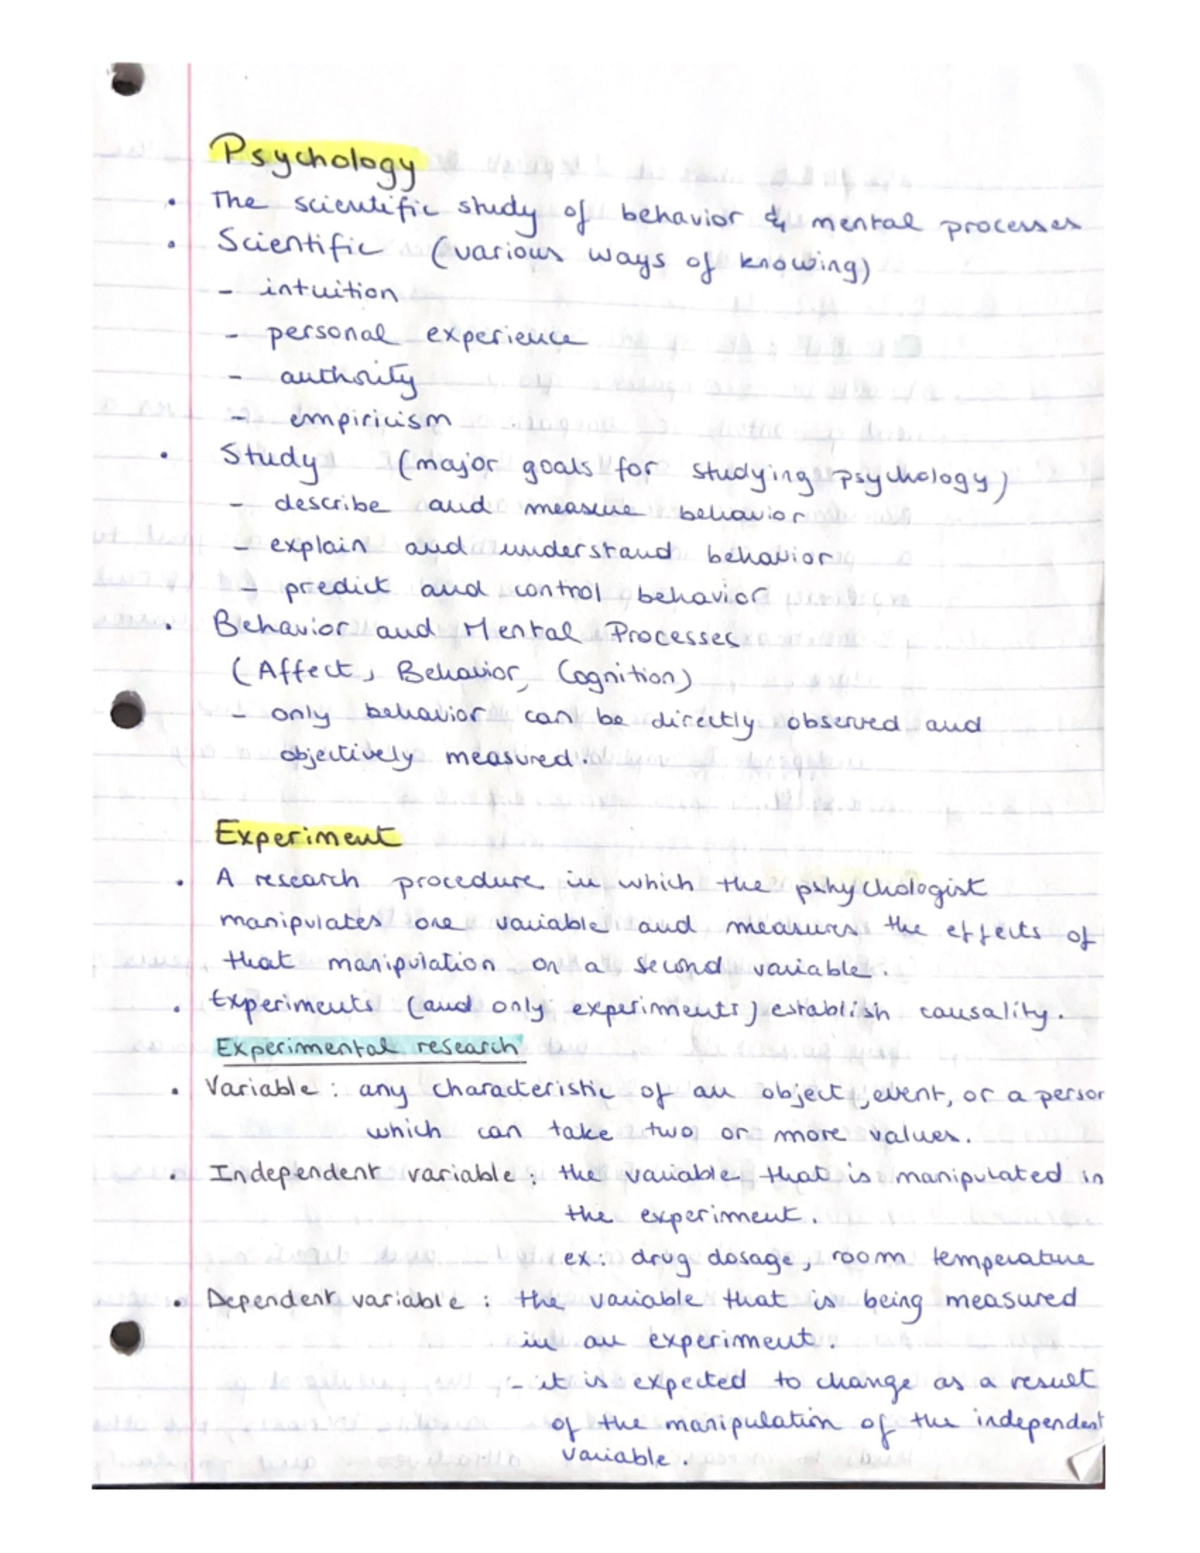 Psychology
• The scientific study of behavior & mental processes
• Scientific (various ways of knowing)
- intuition
- personal experience
- authority
- empiricism
• Study (major goals for studying psychology)
- describe and measure behavior
- explain and understand behavior
- predict and control behavior
• Behavior and Mental Processes
(Affect, Behavior, Cognition)
- only behavior can be directly observed and
objectively measured.
Experiment
• A research procedure in which the pshychologist
manipulates one variable and measures the effects of
that manipulation on a second variable.
• Experiments (and only experiments) establish causality.
Experimental research
• Variable : any characteristic of an object, event, or a person
which can take two or more values.
• Independent variable : the variable that is manipulated in
the experiment.
ex: drug dosage, room temperature
• Dependent variable : the variable that is being measured
in an experiment.
- it is expected to change as a result
of the manipulation of the independent
variable.